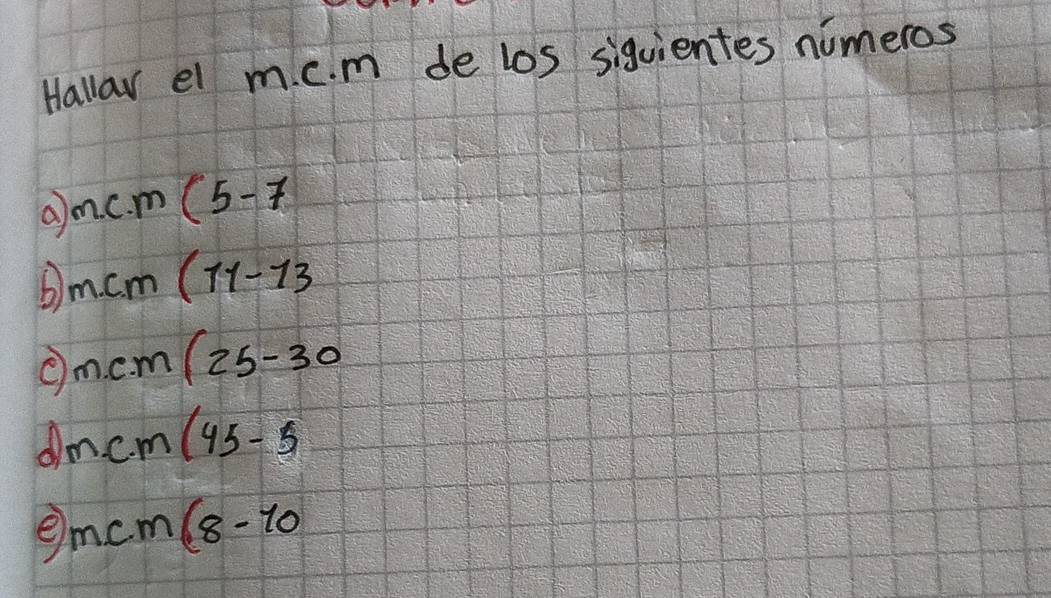 Hallar el m.c.m de los siguientes números
a) m.c.m (5-7
b) m.c.m (11-13
c) m.c.m (25-30
d) m.c.m (45-5
e) m.c.m (8-10